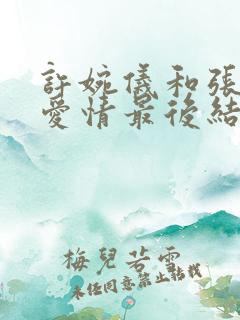 許婉儀和張
愛情最後結
梅兒若雪
未經同意禁止轉載